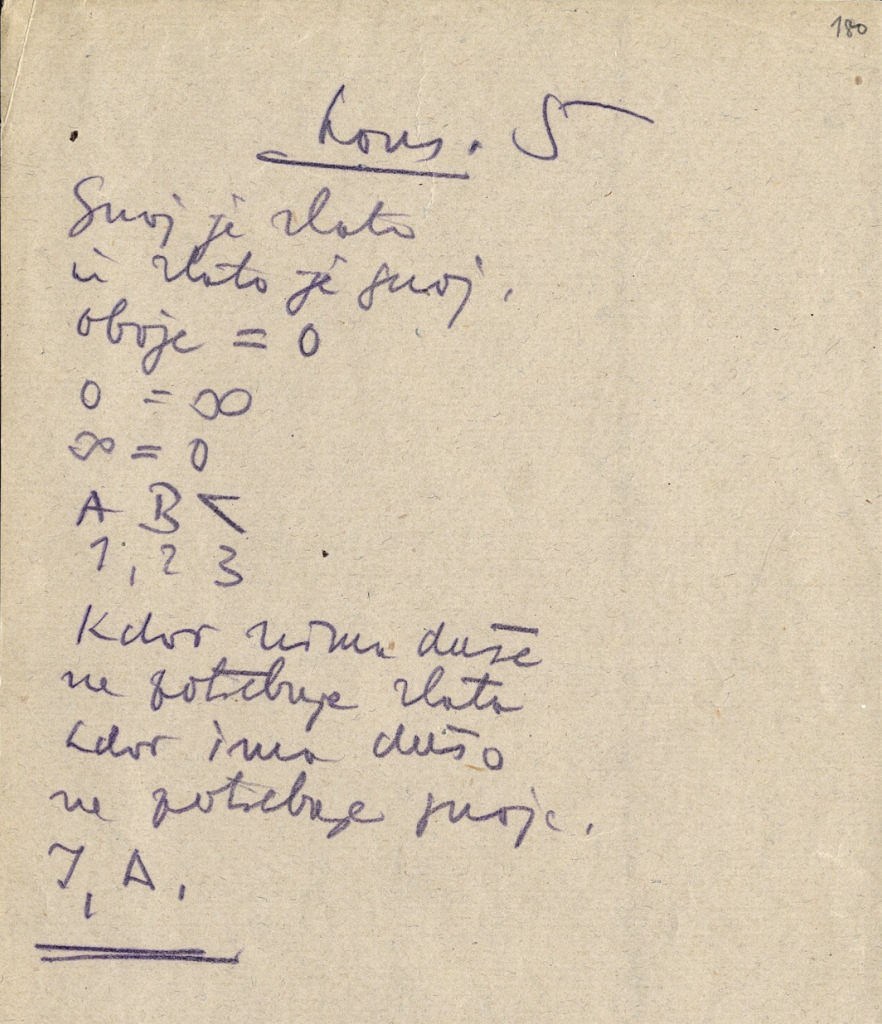 180
kons. 5
Gnoj je zlato
in zlato je gnoj.
oboje = 0
0 = ∞
∞ = 0
A B <
1, 2 3
Kdor nima duše
ne potrebuje zlata
kdor ima dušo
ne potrebuje gnoja.
I, A,